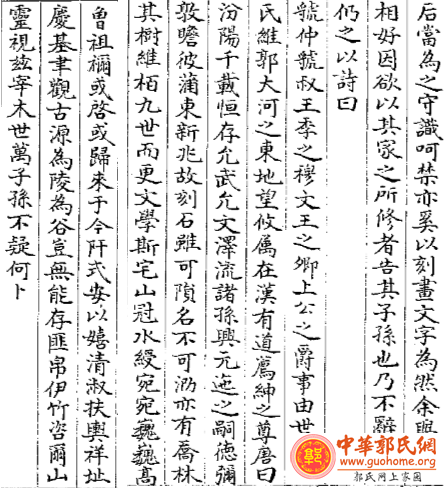 后當為之守識呵禁亦奚以刻畫文字為然余與
相好因欲以其家之所修者告其子孫也乃不辭
仍之以詩曰
虢仲虢叔王季之穆文王之卿上公之爵事由世
氏維郭大河之東地望攸屬在漢有道薦紳之尊唐曰
汾陽千載恒存允武允文澤流諸孫興元迤之嗣德彌
敦瞻彼蒲東新兆故刻石雖可隕名不可泐亦有喬林
其樹維柏九世而更文學斯宅山冠水綬宛宛巍巍高
魯祖禰或啓或歸來于今阡式安以嬉清淑扶輿祥址
慶基聿觀古源為陵為谷豈無能存匪帛伊竹咨爾山
靈視茲宰木世萬子孫不疑何卜
中華郭氏網
www.guohome.org
郭氏网上家园